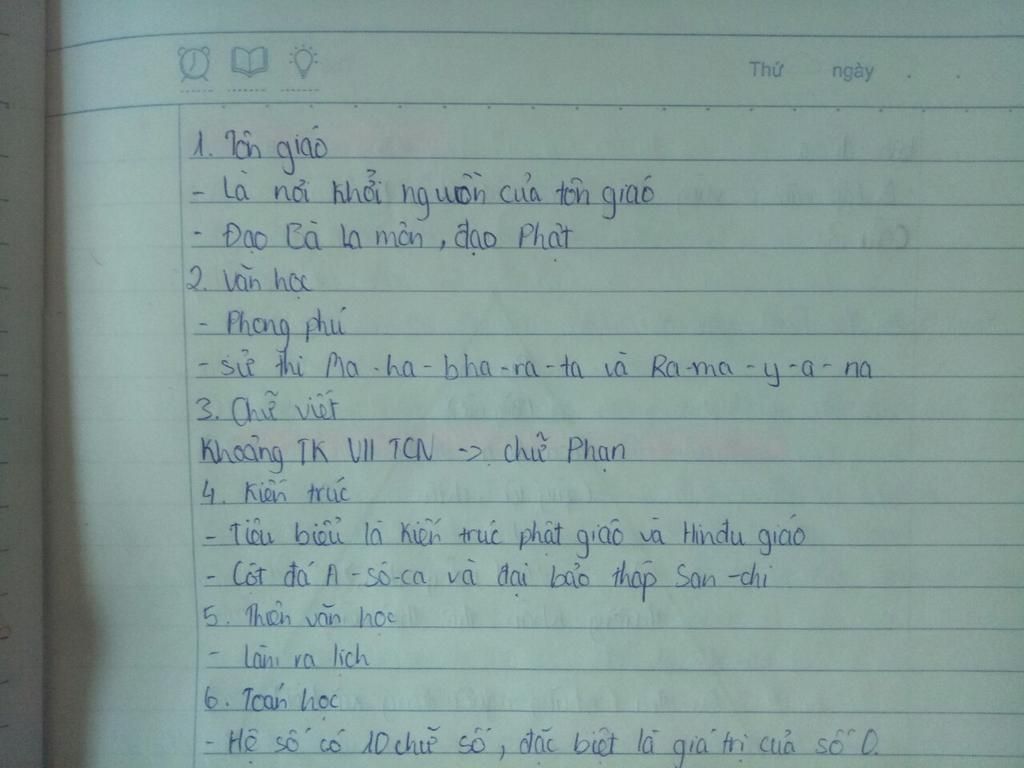 Thứ ngày . .
1. Tôn giáo
- Là nơi khởi nguồn của tôn giáo
- Đạo Bà la môn, đạo Phật
2. Văn học
- Phong phú
- sử thi Ma-ha-bha-ra-ta và Ra-ma-y-a-na
3. Chữ viết
Khoảng TK VII TCN -> chữ Phạn
4. Kiến trúc
- Tiêu biểu là kiến trúc phật giáo và Hinđu giáo
- Cột đá A-sô-ca và đại bảo tháp San-chi
5. Thiên văn học
- Làm ra lịch
6. Toán học
- Hệ số có 10 chữ số, đặc biệt là giá trị của số 0.